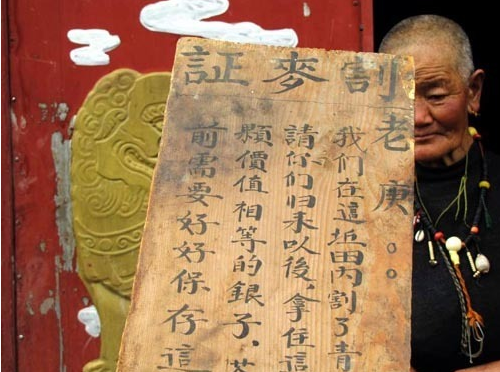 割麥証
老庚：
我们在這坵田内割了青
請你们归来以後，拿住這
顆價值相等的銀子，
前需要好好保存這